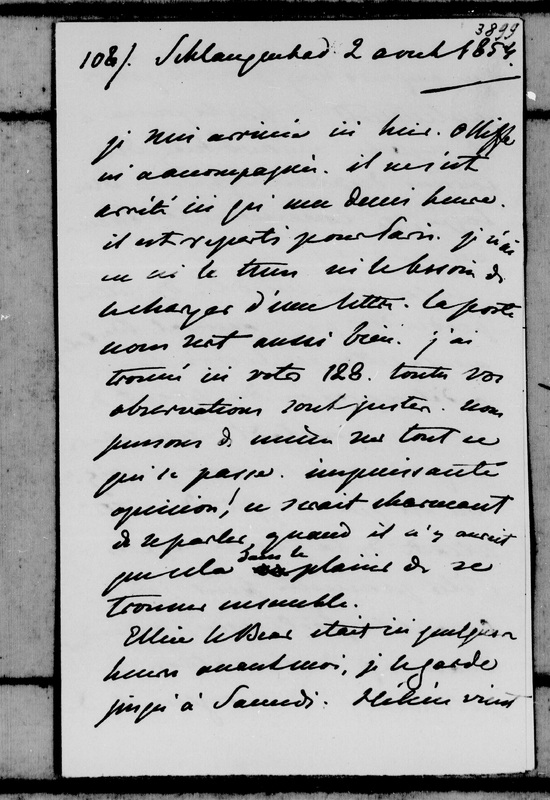 3899
108/. Schlangenbad. 2 aout 1854.
je suis arrivée ici hier. Oliffe
m'a accompagnée. il ne s'est
arrêté ici qu'une demi heure.
il est reparti pour Paris. je n'ai
eu ni le tems ni le besoin de
le charger d'une lettre. la poste
nous sert aussi bien. j'ai
trouvé ici votre 128. toutes vos
observations sont justes. nous
pensons de même sur tout ce
qui se passe. impuissante
opinion! ce serait charmant
de se parler, quand il n'y aurait
que cela dans le plaisir de se
trouver ensemble.
Ellice le Bear était ici quelques
heures avant moi, je le garde
jusqu'à Samedi. Hélène vient